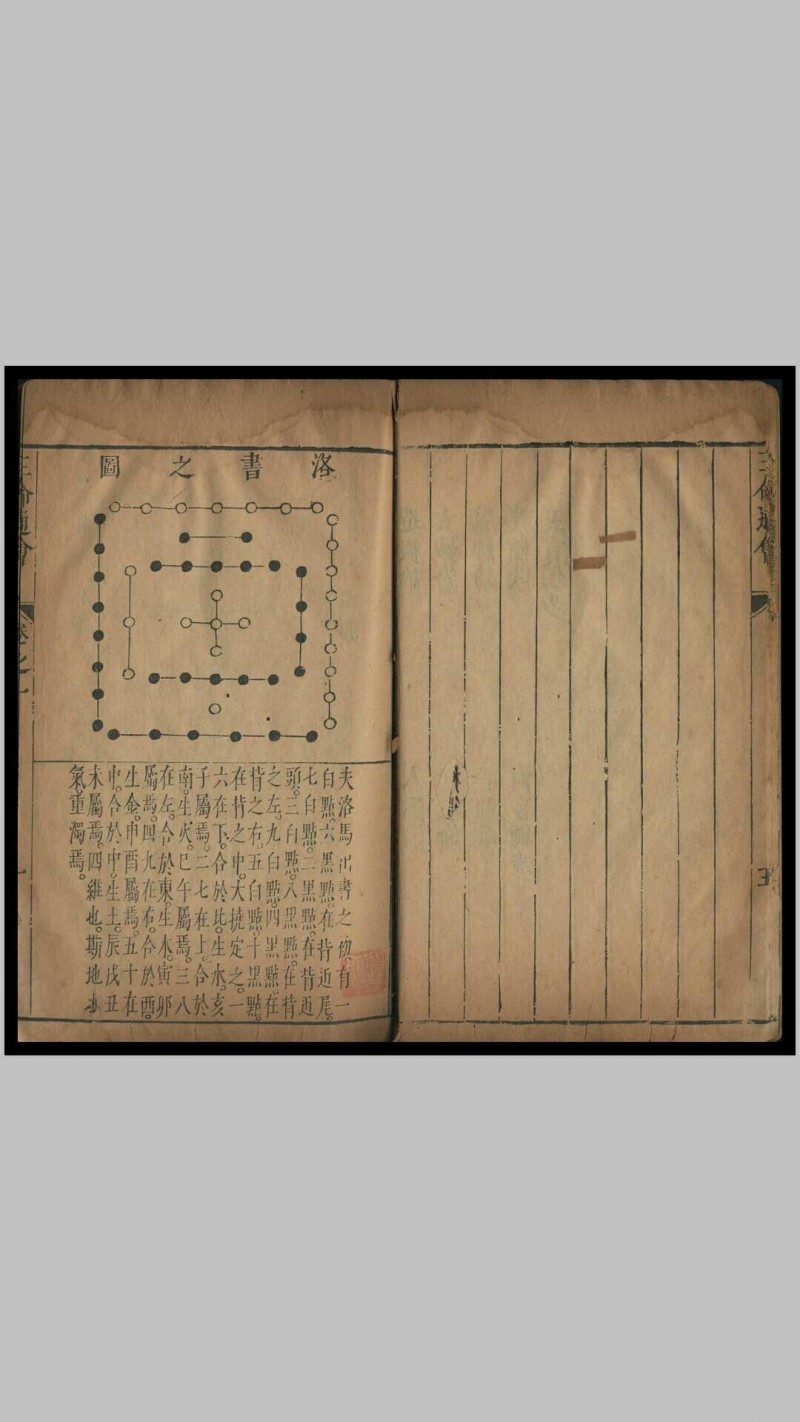 三命通會
五
洛書之圖
夫洛馬出書之初有一
白點。六黑點。在背近尾。
七白點。二黑點。在背近
頭。三白點。八黑點。在背
之左。九白點。四黑點。在
背之右。五白點。十黑點。
在背之中。大撓定之。一
六在下。合於北。生水。亥
子屬焉。二七在上。合於
南。生火。巳午屬焉。三八
在左。合於東。生木。寅卯
屬焉。四九在右。合於酉。
生金。申酉屬焉。五十在
中。合於中。生土。辰戌丑
未屬焉。四維也。斯地也。
氣重濁焉。
三命通會